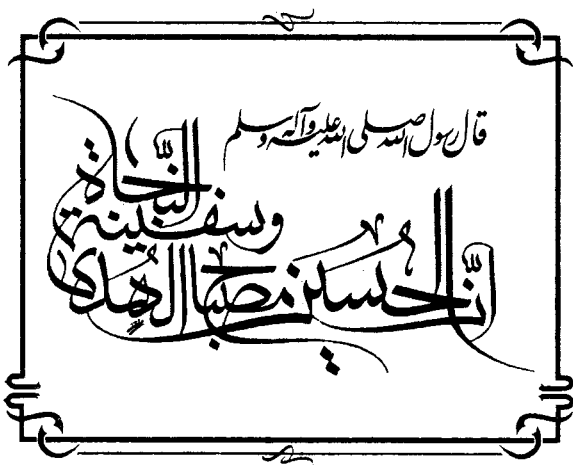 قال رسول الله صلی الله علیه وآله وسلم
إنّ الحسین مصباح الهدی
وسفینة النّجاة